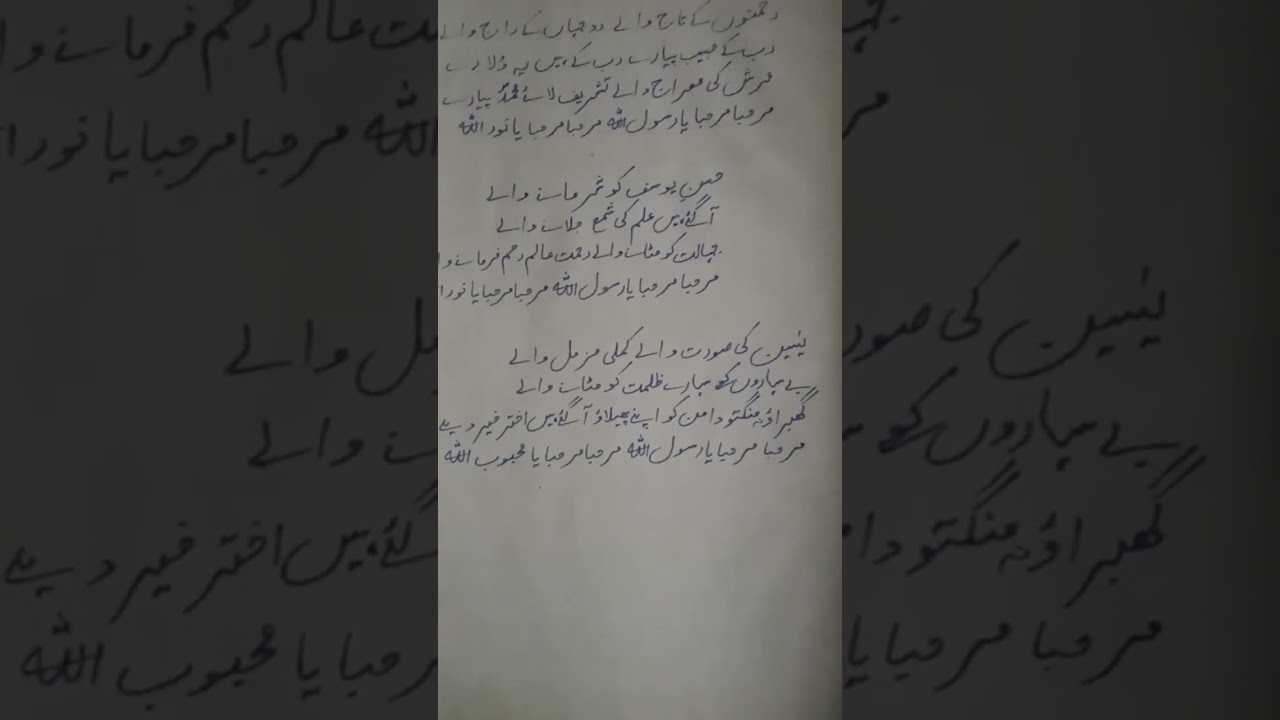 رحمتوں کے تاج والے دو جہاں کے راج والے
رب کے حبیب پیارے رب کے ہیں یہ دُلارے
عرش کی معراج والے تشریف لائے محمدؐ پیارے
مرحبا مرحبا یا رسول اللہ مرحبا مرحبا یا نور اللہ
حسنِ یوسف کو شرمانے والے
آگئے ہیں علم کی شمع جلانے والے
جہالت کو مٹانے والے رحمت عالم رحم فرمانے وا
مرحبا مرحبا یا رسول اللہ مرحبا مرحبا یا نور ا
یٰسین کی صورت والے کملی مزمل والے
بے سہاروں کے سہارے ظلمت کو مٹانے والے
گھبراؤ نہ منگتو دامن کو اپنے پھیلاؤ آگئے ہیں
مرحبا مرحبا یا رسول اللہ مرحبا مرحبا یا محبوب اللہ